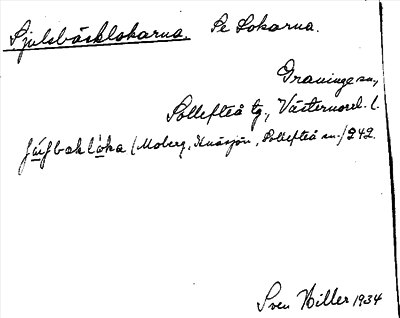 Sjulsbäcklokarna. Se Lokarna.
Graninge sn,
Sollefteå tg., Västernorrl. l.
(Moberg, Knäsjön, Sollefteå sn.) 242.
Sven Hiller 1934